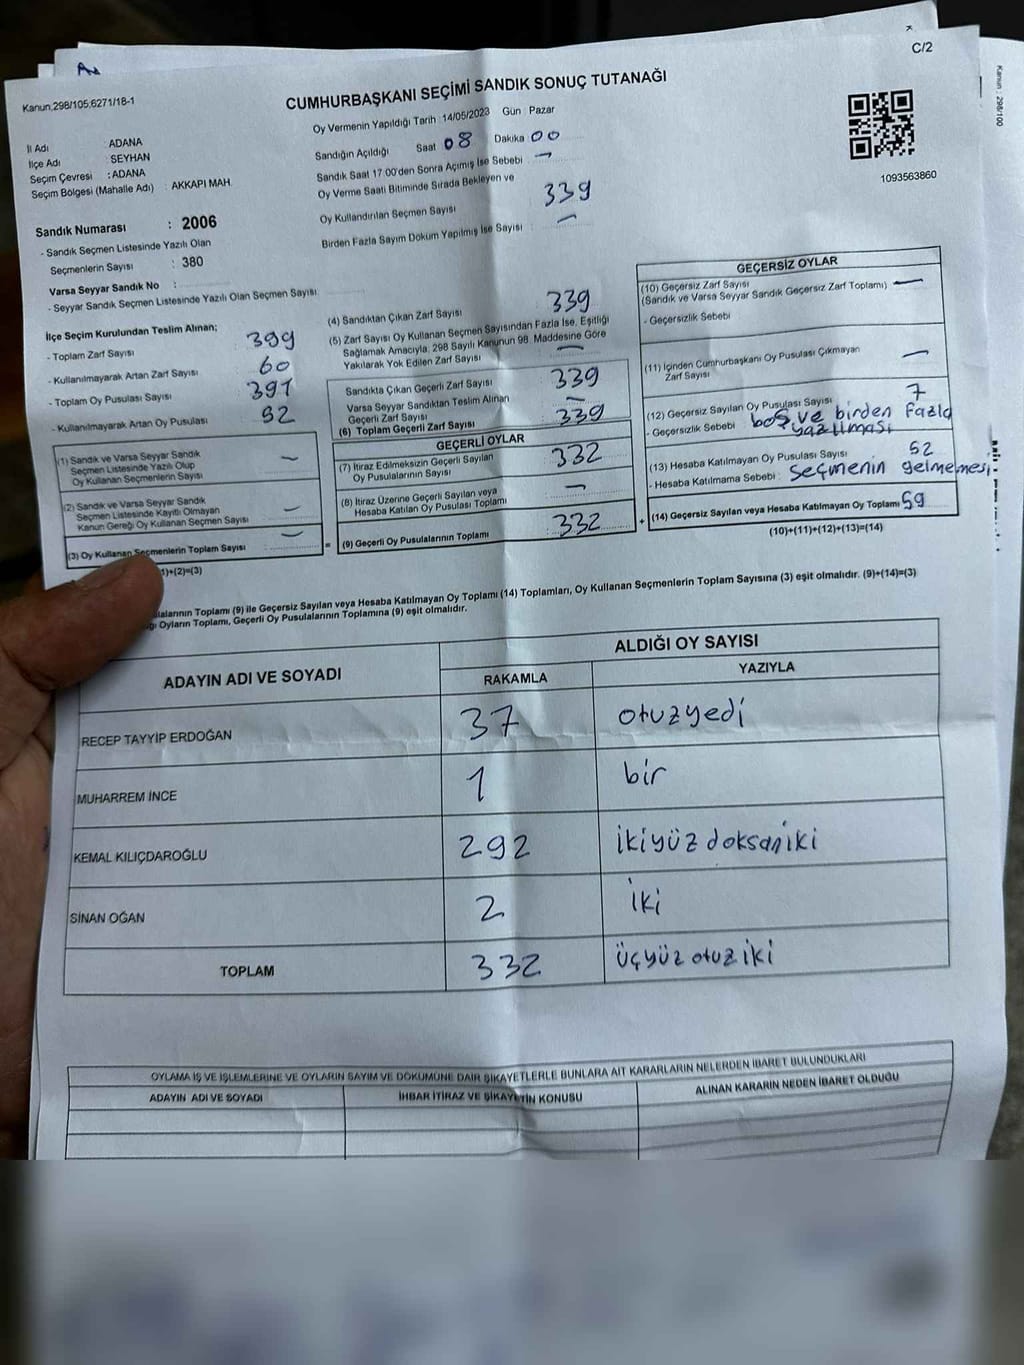 C/2
Kanun.298/105;6271/18-1
Kanun : 298/100
CUMHURBAŞKANI SEÇİMİ SANDIK SONUÇ TUTANAĞI
İl Adı : ADANA
İlçe Adı : SEYHAN
Seçim Çevresi : ADANA
Seçim Bölgesi (Mahalle Adı) : AKKAPI MAH.
Sandık Numarası : 2006
- Sandık Seçmen Listesinde Yazılı Olan
Seçmenlerin Sayısı : 380
Varsa Seyyar Sandık No :
- Seyyar Sandık Seçmen Listesinde Yazılı Olan Seçmen Sayısı
Oy Vermenin Yapıldığı Tarih : 14/05/2023 Gün : Pazar
Sandığın Açıldığı Saat 08 Dakika 00
Sandık Saat 17.00'den Sonra Açımış İse Sebebi —
Oy Verme Saati Bitiminde Sırada Bekleyen ve
Oy Kullandırılan Seçmen Sayısı 339
Birden Fazla Sayım Döküm Yapılmış İse Sayısı : —
1093563860
İlçe Seçim Kurulundan Teslim Alınan;
- Toplam Zarf Sayısı 399
- Kullanılmayarak Artan Zarf Sayısı 60
- Toplam Oy Pusulası Sayısı 391
- Kullanılmayarak Artan Oy Pusulası 52
(1) Sandık ve Varsa Seyyar Sandık
Seçmen Listesinde Yazılı Olup
Oy Kullanan Seçmenlerin Sayısı —
(2) Sandık ve Varsa Seyyar Sandık
Seçmen Listesinde Kayıtlı Olmayan
Kanun Gereği Oy Kullanan Seçmen Sayısı —
(3) Oy Kullanan Seçmenlerin Toplam Sayısı —
1)+(2)=(3)
(4) Sandıktan Çıkan Zarf Sayısı 339
(5) Zarf Sayısı Oy Kullanan Seçmen Sayısından Fazla İse, Eşitliği
Sağlamak Amacıyla, 298 Sayılı Kanunun 98. Maddesine Göre
Yakılarak Yok Edilen Zarf Sayısı —
Sandıkta Çıkan Geçerli Zarf Sayısı 339
Varsa Seyyar Sandıktan Teslim Alınan
Geçerli Zarf Sayısı —
(6) Toplam Geçerli Zarf Sayısı 339
GEÇERLİ OYLAR
(7) İtiraz Edilmeksizin Geçerli Sayılan
Oy Pusulalarının Sayısı 332
(8) İtiraz Üzerine Geçerli Sayılan veya
Hesaba Katılan Oy Pusulası Toplamı —
= (9) Geçerli Oy Pusulalarının Toplamı 332 +
GEÇERSİZ OYLAR
(10) Geçersiz Zarf Sayısı —
(Sandık ve Varsa Seyyar Sandık Geçersiz Zarf Toplamı)
- Geçersizlik Sebebi
(11) İçinden Cumhurbaşkanı Oy Pusulası Çıkmayan
Zarf Sayısı —
(12) Geçersiz Sayılan Oy Pusulası Sayısı 7
- Geçersizlik Sebebi boş ve birden fazla
yazılması
(13) Hesaba Katılmayan Oy Pusulası Sayısı 52
- Hesaba Katılmama Sebebi : seçmenin gelmemesi
(14) Geçersiz Sayılan veya Hesaba Katılmayan Oy Toplamı 59
(10)+(11)+(12)+(13)=(14)
ulalarının Toplamı (9) ile Geçersiz Sayılan veya Hesaba Katılmayan Oy Toplamı (14) Toplamları, Oy Kullanan Seçmenlerin Toplam Sayısına (3) eşit olmalıdır. (9)+(14)=(3)
ğı Oyların Toplamı, Geçerli Oy Pusulalarının Toplamına (9) eşit olmalıdır.
ADAYIN ADI VE SOYADI
ALDIĞI OY SAYISI
RAKAMLA YAZIYLA
RECEP TAYYİP ERDOĞAN 37 otuzyedi
MUHARREM İNCE 1 bir
KEMAL KILIÇDAROĞLU 292 ikiyüz doksaniki
SİNAN OĞAN 2 iki
TOPLAM 332 üçyüz otuz iki
OYLAMA İŞ VE İŞLEMLERİNE VE OYLARIN SAYIM VE DÖKÜMÜNE DAİR ŞİKAYETLERLE BUNLARA AİT KARARLARIN NELERDEN İBARET BULUNDUKLARI
ADAYIN ADI VE SOYADI İHBAR İTİRAZ VE ŞİKAYETİN KONUSU ALINAN KARARIN NEDEN İBARET OLDUĞU